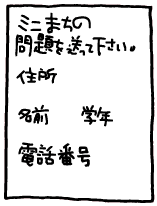 ミニまちの
問題を送って下さい。
住所
名前　学年
電話番号